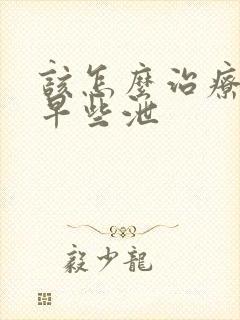 該怎麼治療
早些泄
毅少龍